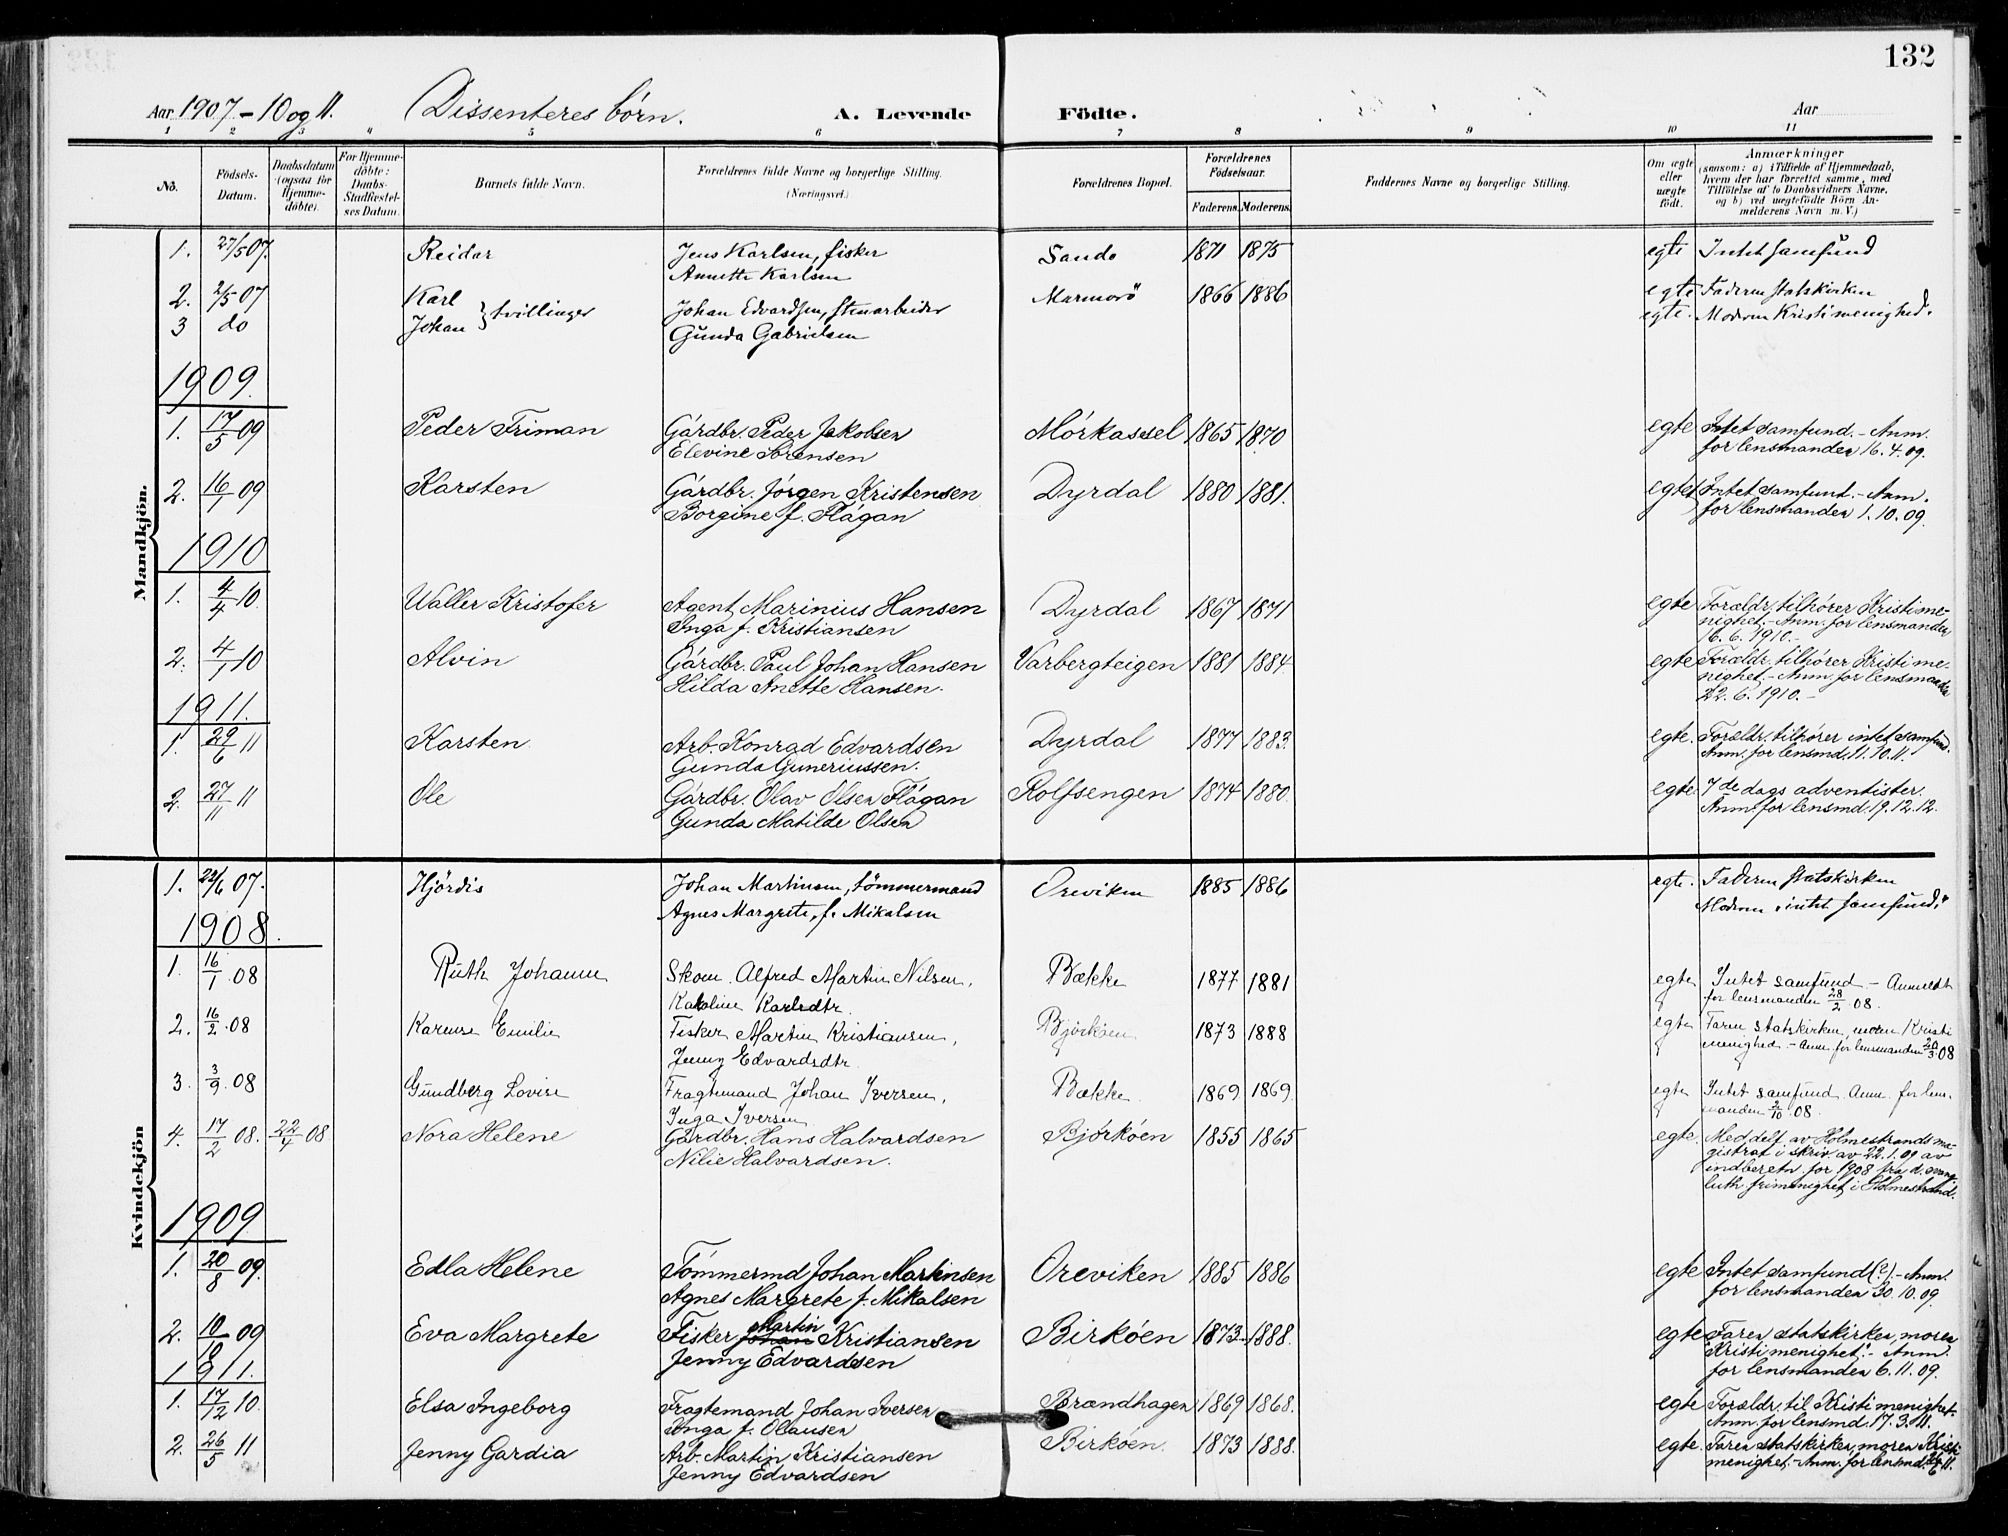 132
Aar 1907.-10 og 11. Dissenteres börn. A. Levende Födte. Aar
1 2 3 4 5 6 7 8 9 10 11
No. Födsels-Datum. Daabsdatum (ogsaa for Hjemmedöbte). For Hjemmedöbte: Daabs-Stadfæstelses Datum. Barnets fulde Navn. Forældrenes fulde Navne og borgerlige Stilling. (Næringsvei.) Forældrenes Bopæl. Forældrenes Födselsaar. Faderens. Moderens. Faddernes Navne og borgerlige Stilling. Om ægte eller uægte födt. Anmærkninger (saasom: a) i Tilfælde af Hjemmedaab, hvem der har forrettet samme, med Tilföielse af to Daabsvidners Navne, og b) ved uægtefödte Börn Anmelderens Navn m. V.)
Mandkjön.
1. 27/5 07. Reidar Jens Karlsen, fisker Sando 1871 1875 egte Intet samfund
Annette Karlsen
2. 2/5 07 Karl } tvillinger Johan Edvardsen, stenarbeider Marmorö 1866 1886 egte Faderen statskirken
3 do Johan Gunda Gabrielsen egte. Moderen Kristi menighed.
1909.
1. 17/5 09 Peder Friman Gårdbr. Peder Jakobsen Mórkassel 1865 1870 egte Intet samfund. - Anm.
Elevine Sorensen for lensmanden 16.4.09.
2. 16/1 09 Karsten Gårdbr. Jórgen Kristensen Dyrdal 1880 1881. egte Intet samfunt. - Anm.
Borgine f. Flågan for lensmanden 1.10.09.
1910
1. 4/4 10. Waller Kristofer Agent Marinius Hansen Dyrdal 1867 1871 egte Forældr. tilhører Kristi me-
Inga f. Kristiansen nighet. - Anm. for lensmanden
16.6.1910.-
2. 4/1 10 Alvin Gårdbr. Paul Johan Hansen Varbergteigen 1881 1884. egte Forældr. tilhører Kristi me-
Hilda Anette Hansen. nighet. - Anm. for lensmanden
22.6.1910.-
1911.
1. 29/6 11 Karsten Arb. Konrad Edvardsen Dyrdal 1877 1883. egte. Forældr. tilhører intet samfund.
Gunda Guneriussen. Anm. for lensmd. 11.10.11.
2. 27/11 11 Ole Gårdbr. Olav Olsen Flågan Rolfsengen 1874 1880. egte. 7de dags adventister.
Gunda Matilde Olsen Anm. for lensmd. 19.12.12.
Kvindekjön
1. 22/6 07. Hjördis Johan Martinsen, tömmermand Oreviken 1885 1886 egte. Faderen statskirken
Agnes Margrete, f. Mikalsen Moderen intet samfund.
1908.
1. 16/1 08 Ruth Johanne Skom. Alfred Martin Nilsen, Bække 1877 1881 egte Intet samfund - Anmeldt
Karoline Karlsdtr. for lensmanden 28/2 08.
2. 16/2 08 Karense Emilie Fisker Martin Kristiansen, Bjórkóen 1873 1888 egte Faren statskirken, moren Kristi
Jenny Edvardsdtr. menighed - Anm. for lensmanden 20/3 08
3. 3/9 08 Gundberg Lovise Fragtemand Johan Iversen, Bække 1869 1869. egte Intet samfund. Anm. for lens-
Inga Iversen manden 2/10 08.
4. 17/2 08. 22/4 08 Nora Helene Gårdbr. Hans Halvardsen Bjórkóen 1855 1865 egte. Meddelt av Holmestrands ma-
Nilie Halvardsen. gistrat i skriv. av 22.1.09 av
indberetn. for 1908 fra d. evang
luth frimenighet i Holmestrand.
1909
1. 20/8 09. Edla Helene Tómmermd Johan Martinsen Oreviken 1885 1886 egte Intet samfund (?). - Anm.
Agnes Margrete f. Mikalsen for lensmanden 30.10.09.
2. 10/10 09 Eva Margrete Fisker Johan Martin Kristiansen Birkóen 1873 1888. egte Faren statskirken, moren
Jenny Edvardsen "Kristi menighet". - Anm.
for lensmanden 6.11.09.
1911.
1. 17/12 10. Elsa Ingeborg Fragtemand Johan Iversen Brændhagen 1869 1868. egte Forældr. til Kristi menighet.
Inga f. Olausen Anm. for lensmd. 17.3.11.
2. 26/5 11 Jenny Gardia Arb. Martin Kristiansen Birkóen. 1873 1888. egte. Faren statskirken, moren Kristi
Jenny Edvardsen menighet. - Anm. for lensmd.